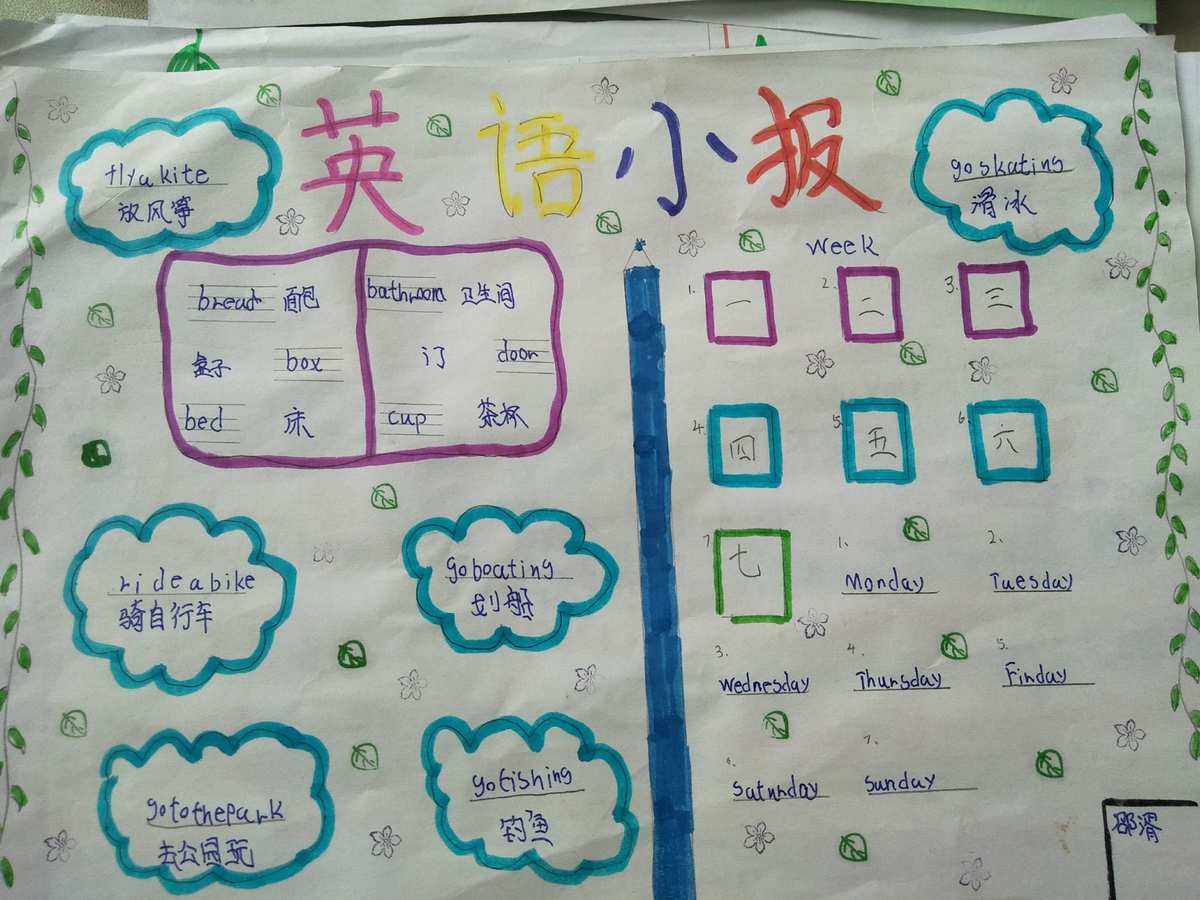 英语小报
flyakite
放风筝
goskating
滑冰
bread 面包
盒子 box
bed 床
bathroom 卫生间
门 door
cup 茶杯
rideabike
骑自行车
goboating
划船
gotothepark
去公园玩
gofishing
钓鱼
week
1. 一 2. 二 3. 三
4. 四 5. 五 6. 六
7. 七
1. Monday
2. Tuesday
3. Wednesday
4. Thursday
5. Finday
6. Saturday
7. Sunday
邵湑